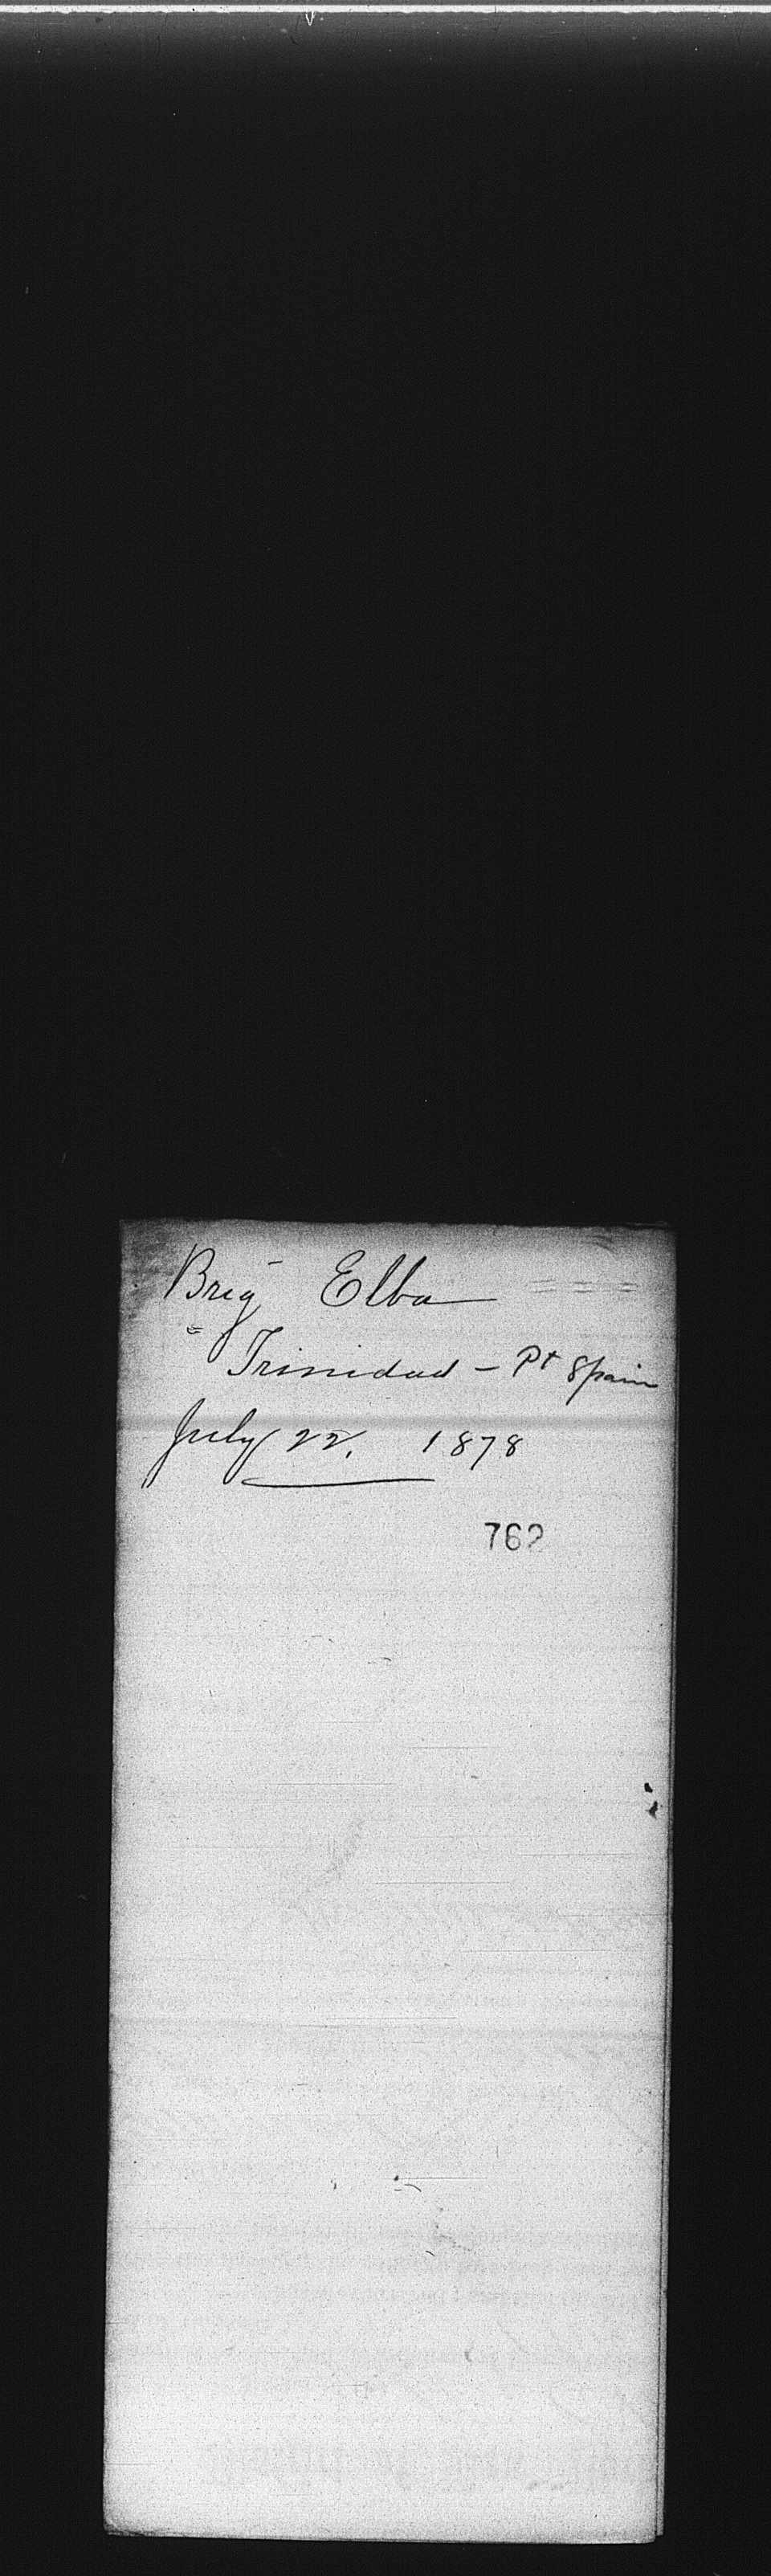 Brig Elba
Trinidad - Pt Spain
July 22, 1878
762